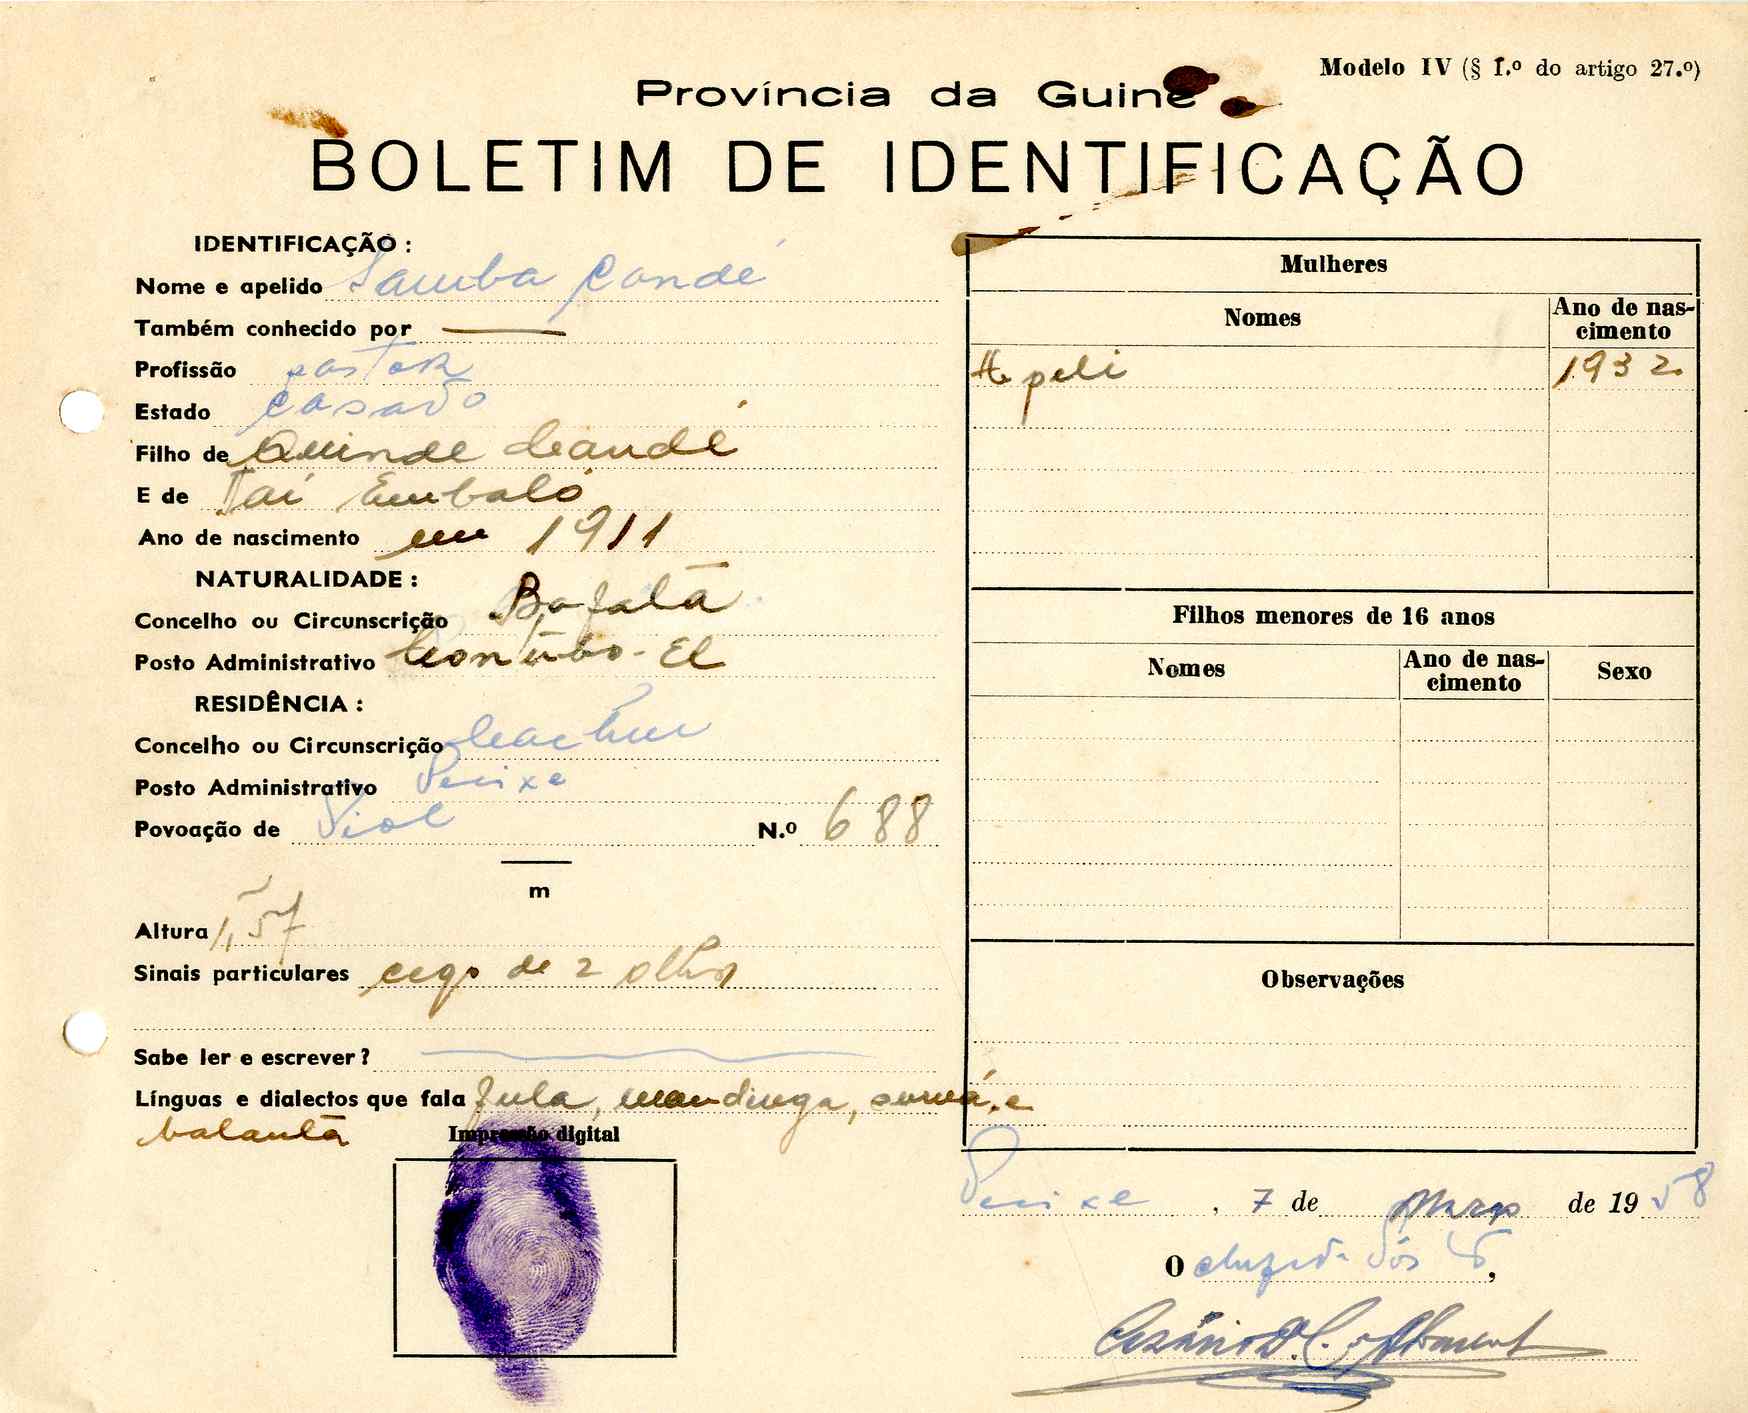 Modelo IV (§ 1.º do artigo 27.º)
Província da Guiné
BOLETIM DE IDENTIFICAÇÃO
IDENTIFICAÇÃO :
Nome e apelido Samba Candé
Também conhecido por —
Profissão pastor
Estado casado
Filho de Quinde Candé
E de Tai Embaló
Ano de nascimento em 1911
NATURALIDADE :
Concelho ou Circunscrição Bafatá
Posto Administrativo Contubo-El
RESIDÊNCIA :
Concelho ou Circunscrição Cacheu
Posto Administrativo Pecixe
Povoação de N.º 688
m
Altura 1,57
Sinais particulares cego de 2 olhos
Sabe ler e escrever?
Línguas e dialectos que fala fula, mandinga, e
balanta
Impressão digital
Mulheres
Nomes
Ano de nascimento
peli 1932
Filhos menores de 16 anos
Nomes
Ano de nascimento
Sexo
Observações
Pecixe, 7 de Março de 1958
O Chefe do Posto,